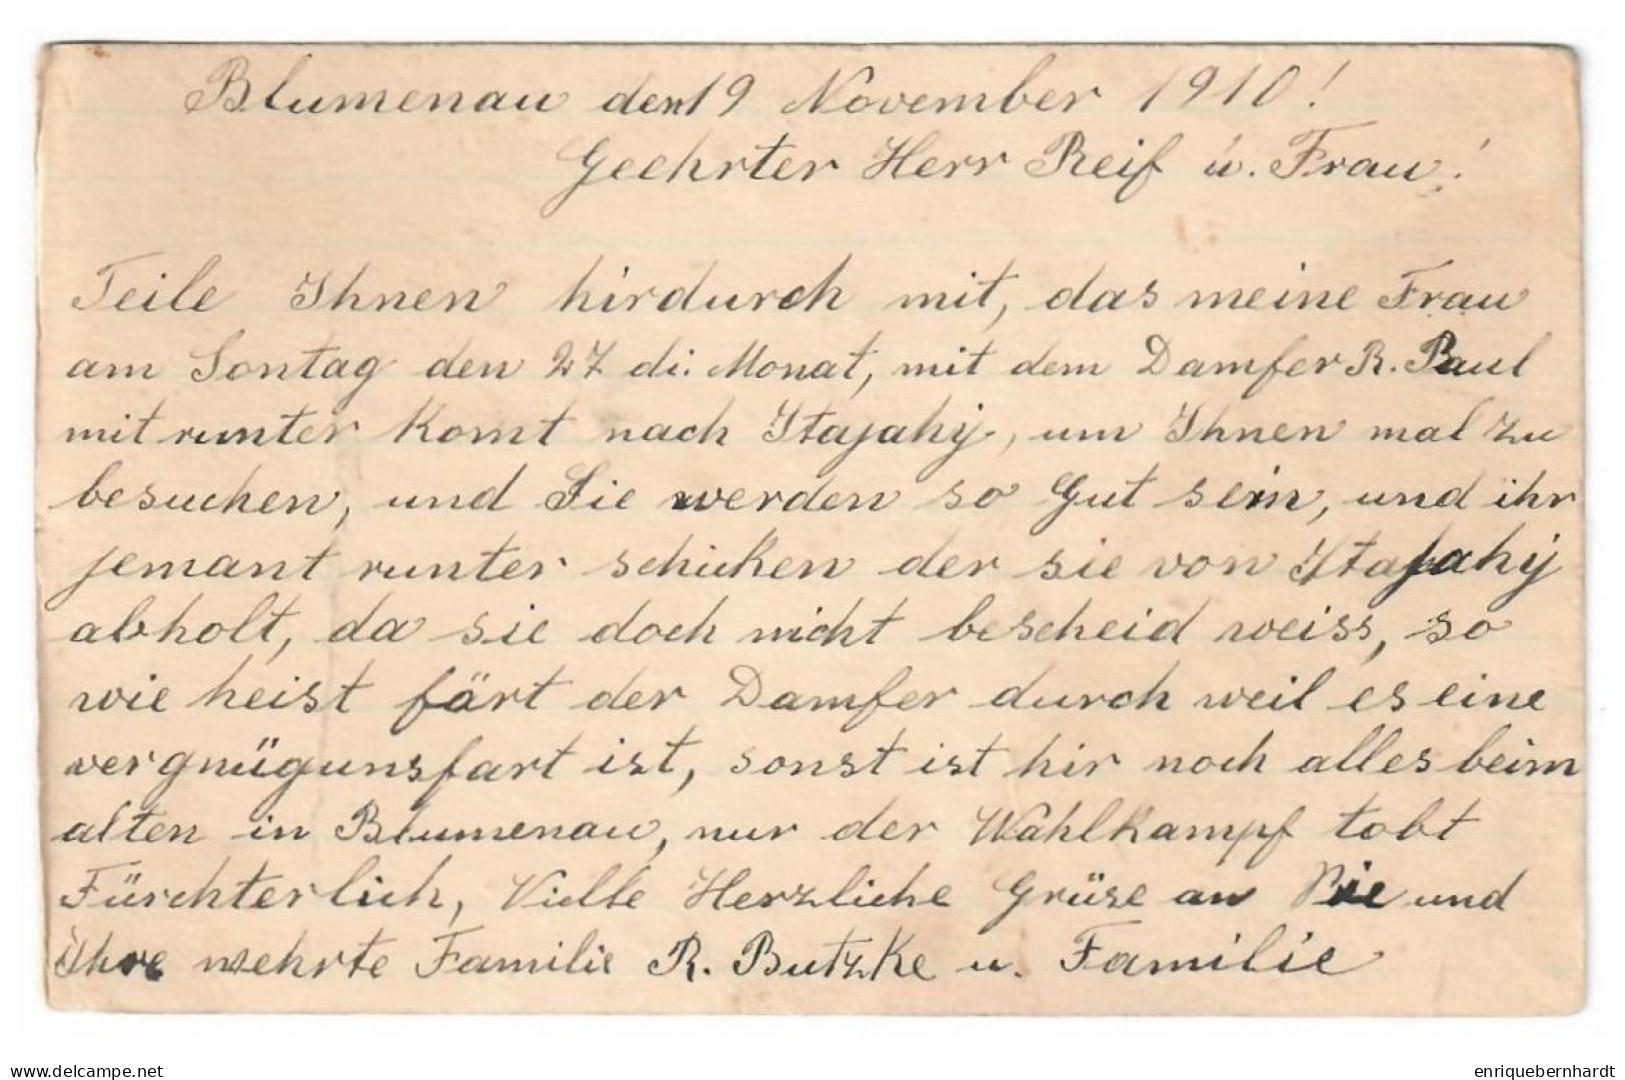 Blumenau den 19 November 1910!
Geehrter Herr Reif u. Frau!
Teile Ihnen hirdurch mit, das meine Frau
am Sontag den 27 di. Monat, mit dem Damfer R. Paul
mit runter komt nach Itajahij, um Ihnen mal zu
besuchen, und Sie werden so Gut sein, und ihr
jemant runter schicken der sie von Itajahij
abholt, da sie doch nicht bescheid weiss, so
wie heist färt der Damfer durch weil es eine
vergnügunsfart ist, sonst ist hir noch alles beim
alten in Blumenau, nur der Wahlkampf tobt
Fürchterlich, Vielle Herzliche Grüse an Sie und
Ihre wehrte Familie R. Butzke u. Familie
www.delcampe.net
enriquebernhardt